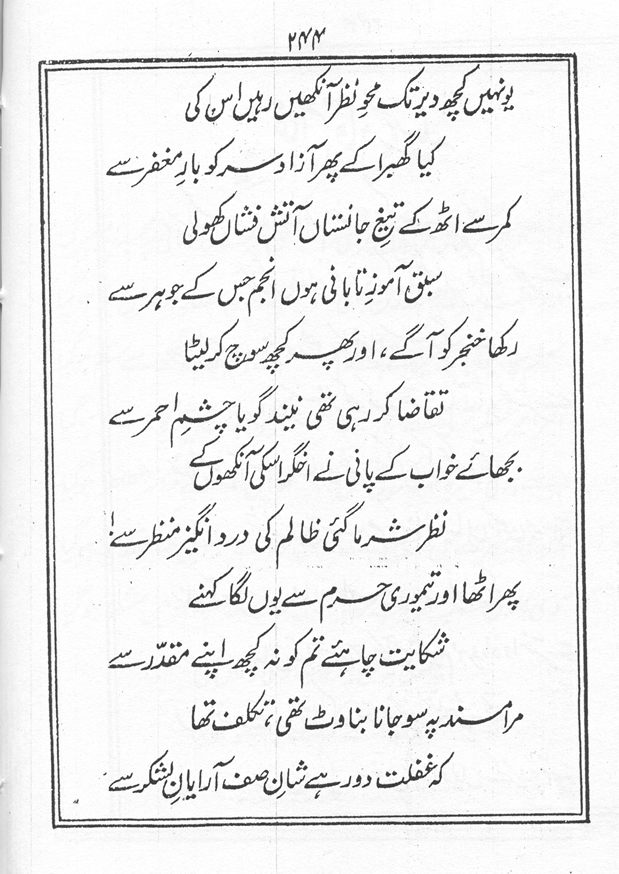 ۲۴۴
یونہیں کچھ دیر تک محوِ نظر آنکھیں رہیں اس کی
کیا گھبرا کے پھر آزاد سر کو بارِ مغفر سے
کمر سے اٹھ کے تیغِ جانستاں آتش فشاں کھولی
سبق آموزِ تابانی ہوں انجم جس کے جوہر سے
رکھا خنجر کو آگے، اور پھر کچھ سوچ کر لیٹا
تقاضا کر رہی تھی نیند گویا چشمِ احمر سے
بجھائے خواب کے پانی نے اخگر اسکی آنکھوں کے
نظر شرما گئی ظالم کی درد انگیز منظر سے
پھر اٹھا اور تیموری حرم سے یوں لگا کہنے
شکایت چاہئے تم کو نہ کچھ اپنے مقدّر سے
مرا مسند پہ سو جانا بناوٹ تھی، تکلف تھا
کہ غفلت دور ہے شانِ صف آرایانِ لشکر سے